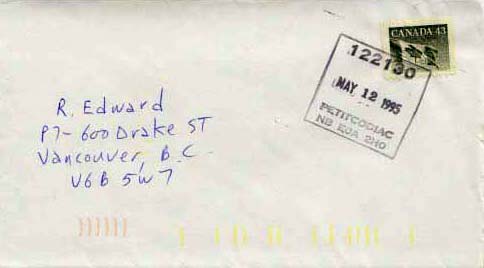 CANADA 43
122130
MAY 12 1995
PETITCODIAC
NB E0A 2H0
R. Edward
P7-600 Drake ST
Vancouver, B.C.
V6B 5W7